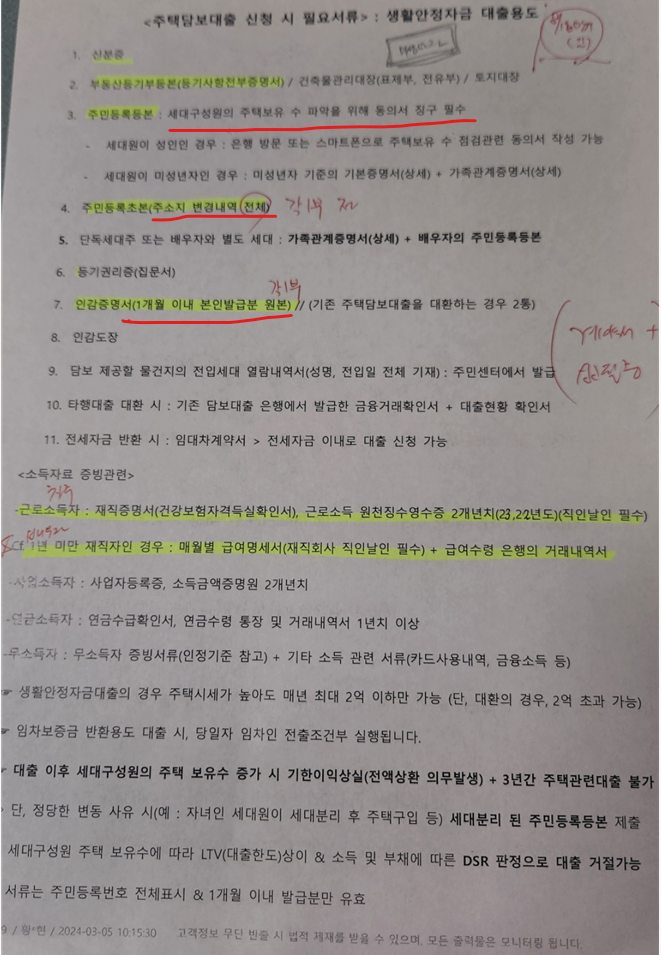 <주택담보대출 신청 시 필요서류> : 생활안정자금 대출용도
1. 신분증
2. 부동산등기부등본(등기사항전부증명서) / 건축물관리대장(표제부, 전유부) / 토지대장
3. 주민등록등본 : 세대구성원의 주택보유 수 파악을 위해 동의서 징구 필수
- 세대원이 성인인 경우 : 은행 방문 또는 스마트폰으로 주택보유 수 점검관련 동의서 작성 가능
- 세대원이 미성년자인 경우 : 미성년자 기준의 기본증명서(상세) + 가족관계증명서(상세)
4. 주민등록초본(주소지 변경내역 (전체) 각1부
5. 단독세대주 또는 배우자와 별도 세대 : 가족관계증명서(상세) + 배우자의 주민등록등본
6. 등기권리증(집문서)
각1부
7. 인감증명서(1개월 이내 본인발급분 원본) // (기존 주택담보대출을 대환하는 경우 2통)
8. 인감도장
9. 담보 제공할 물건지의 전입세대 열람내역서(성명, 전입일 전체 기재) : 주민센터에서 발급
10. 타행대출 대환 시 : 기존 담보대출 은행에서 발급한 금융거래확인서 + 대출현황 확인서
11. 전세자금 반환 시 : 임대차계약서 > 전세자금 이내로 대출 신청 가능
<소득자료 증빙관련>
-근로소득자 : 재직증명서(건강보험자격득실확인서), 근로소득 원천징수영수증 2개년치(23,22년도)(직인날인 필수)
Cf. 1년 미만 재직자인 경우 : 매월별 급여명세서(재직회사 직인날인 필수) + 급여수령 은행의 거래내역서
-사업소득자 : 사업자등록증, 소득금액증명원 2개년치
-연금소득자 : 연금수급확인서, 연금수령 통장 및 거래내역서 1년치 이상
-무소득자 : 무소득자 증빙서류(인정기준 참고) + 기타 소득 관련 서류(카드사용내역, 금융소득 등)
☞ 생활안정자금대출의 경우 주택시세가 높아도 매년 최대 2억 이하만 가능 (단, 대환의 경우, 2억 초과 가능)
☞ 임차보증금 반환용도 대출 시, 당일자 임차인 전출조건부 실행됩니다.
대출 이후 세대구성원의 주택 보유수 증가 시 기한이익상실(전액상환 의무발생) + 3년간 주택관련대출 불가
단, 정당한 변동 사유 시(예 : 자녀인 세대원이 세대분리 후 주택구입 등) 세대분리 된 주민등록등본 제출
세대구성원 주택 보유수에 따라 LTV(대출한도)상이 & 소득 및 부채에 따른 DSR 판정으로 대출 거절가능
서류는 주민등록번호 전체표시 & 1개월 이내 발급분만 유효
9 / 왕*현 / 2024-03-05 10:15:30 고객정보 무단 반출 시 법적 제재를 받을 수 있으며, 모든 출력물은 모니터링 됩니다.